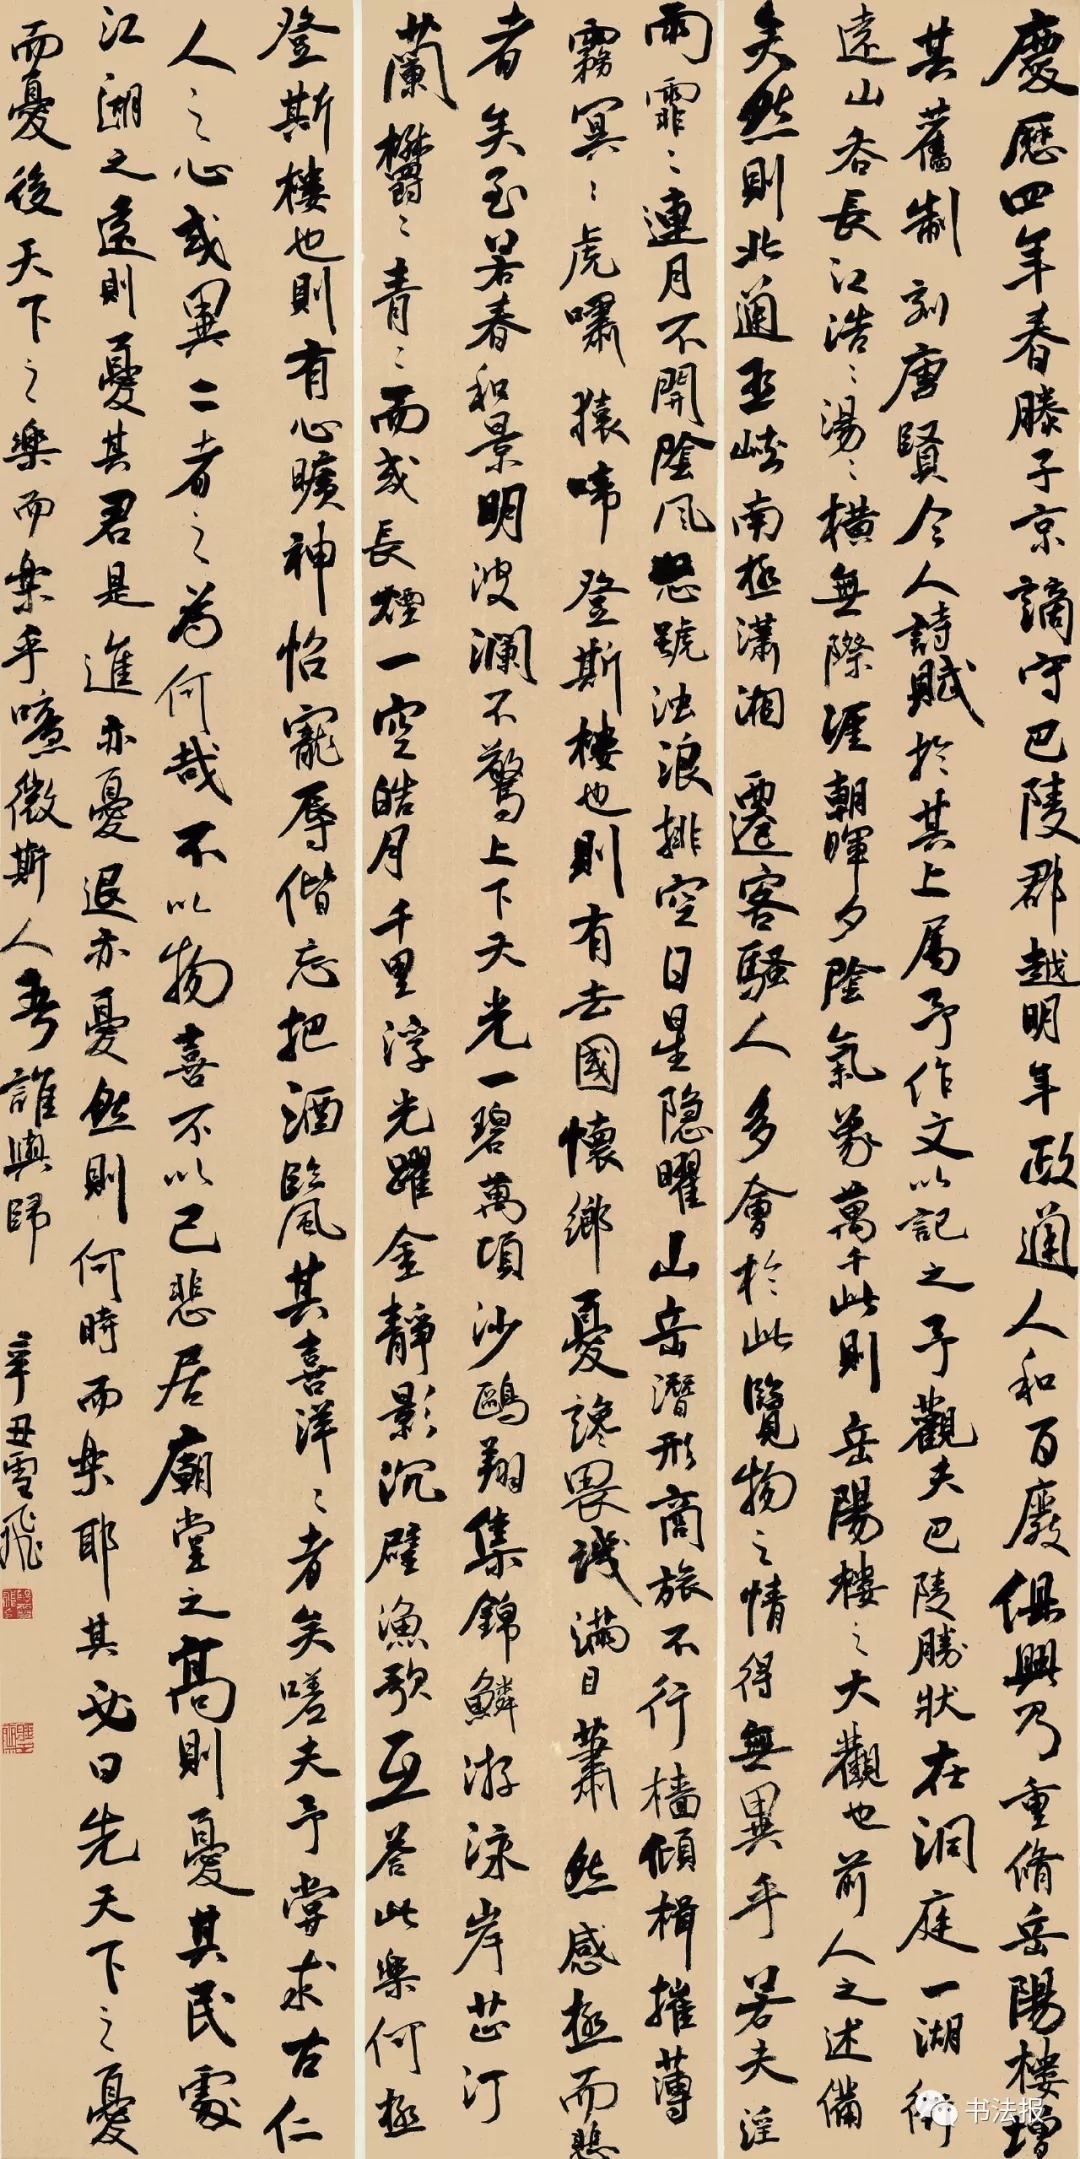 慶歷四年春滕子京謫守巴陵郡越明年政通人和百廢俱興乃重脩岳陽樓增
其舊制刻唐賢今人詩賦於其上属予作文以記之予觀夫巴陵勝狀在洞庭一湖銜
遠山吞長江浩〻湯〻橫無際涯朝暉夕陰氣象萬千此則岳陽樓之大觀也前人之述備
矣然則北通巫峽南極瀟湘遷客騷人多會於此覽物之情得無異乎若夫淫
雨霏〻連月不開陰風怒號浊浪排空日星隐曜山岳潛形商旅不行檣傾楫摧薄
霧冥〻虎嘯猿啼登斯樓也則有去國懷鄉憂讒畏譏滿目蕭然感極而悲
者矣至若春和景明波澜不驚上下天光一碧萬頃沙鷗翔集錦鱗游泳岸芷汀
蘭欝〻青〻而或長煙一空皓月千里浮光躍金靜影沉璧漁歌互答此樂何極
登斯樓也則有心曠神怡寵辱偕忘把酒臨風其喜洋〻者矣嗟夫予嘗求古仁
人之心或異二者之為何哉不以物喜不以己悲居廟堂之高則憂其民處
江湖之遠則憂其君是進亦憂退亦憂然則何時而樂耶其必曰先天下之憂
而憂後天下之樂而樂乎噫微斯人吾誰與歸
辛丑雪飛
书法报